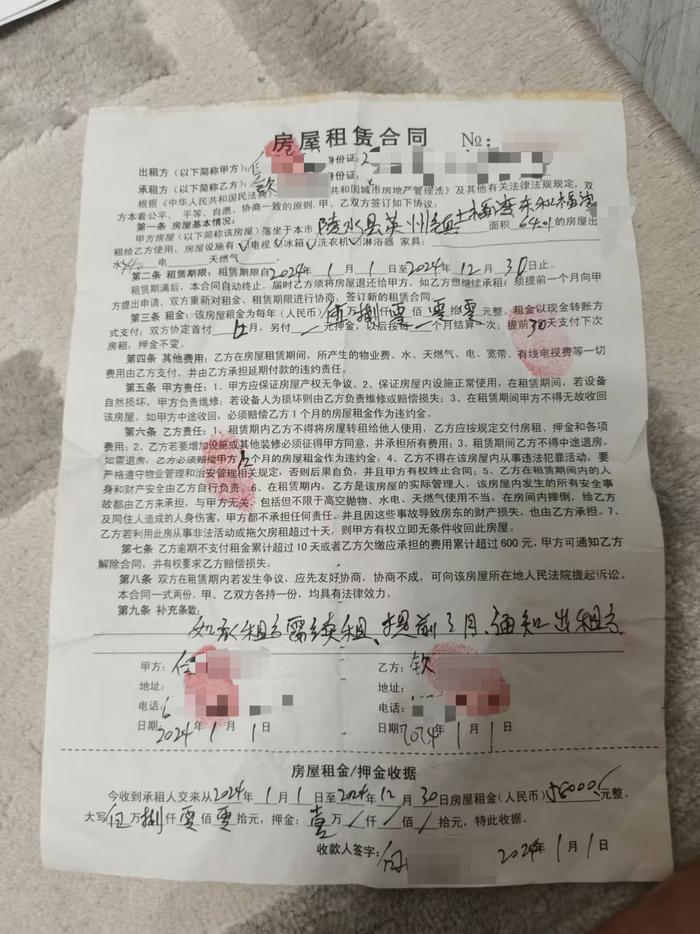 房屋租赁合同 №:
出租方（以下简称甲方）: 身份证:
承租方（以下简称乙方）: 钦 身份证:
根据《中华人民共和国民法典》 共和国城市房地产管理法》及其他有关法律法规规定，双
方本着公平、平等、自愿、协商一致的原则.甲、乙双方签订如下协议:
第一条 房屋基本情况:
甲方房屋（以下简称该房屋）落坐于本市 陵水县英州镇 面积 的房屋出
租给乙方使用，房屋设施有 电视 冰箱 洗衣机 淋浴器 家具:
水 电 天燃气
第二条 租赁期限: 租赁期限自2024年1月1日至2024年12月30日止。
租赁期满后，本合同自动终止，届时乙方须将房屋退还给甲方，如乙方想继续承租，须提前一个月向甲
方提出申请，双方重新对租金、租赁期限进行协商，签订新的租赁合同。
第三条 租金: 该房屋租金为每年（人民币）伍万捌仟零佰零拾零元整。租金以现金转账方
式支付: 双方协定首付 月，另付 元押金，以后按每 个月结算一次; 提前30天支付下次
房租，押金不变。
第四条 其他费用: 乙方在房屋租赁期间，所产生的物业费、水、天燃气、电、宽带、有线电视费等一切
费用由乙方支付，并由乙方承担延期付款的违约责任。
第五条 甲方责任: 1、甲方应保证房屋产权无争议。2、保证房屋内设施正常使用，在租赁期间，若设备
自然损坏、甲方负责维修; 若设备人为损坏则由乙方负责维修或赔偿损失; 3、在租赁期间甲方不得无故收回
该房屋，如甲方中途收回，必须赔偿乙方1个月的房屋租金作为违约金。
第六条 乙方责任: 1、租赁期内乙方不得将房屋转租给他人使用，乙方应按规定交付房租、押金和各项
费用; 2、乙方若要增加设施或其他装修必须征得甲方同意，并承担所有费用; 3、租赁期间乙方不得中途退房，
如需退房，乙方必须赔偿甲方 个月的房屋租金作为违约金; 4、乙方不得在该房屋内从事违法犯罪活动，要
严格遵守物业管理和治安管理相关规定，否则后果自负，并且甲方有权终止合同; 5、乙方在租赁期间内的人
身和财产安全由乙方自行负责。6、在租赁期内，乙方是该房屋的实际管理人，该房屋内发生的所有安全事
故都由乙方来承担，与甲方无关、包括但不限于高空抛物、水电、天然气使用不当，在房间内摔倒，给乙方
及同住人造成的人身伤害，甲方都不承担任何责任。并且因这些事故导致房东的财产损失，也由乙方承担。7、
乙方若利用此房从事非法活动或拖欠房租超过十天，则甲方有权立即无条件收回此房屋。
第七条 乙方逾期不支付租金累计超过10天或者乙方欠缴应承担的费用累计超过600元，甲方可通知乙方
解除合同，并有权要求乙方赔偿损失。
第八条 双方在租赁期内若发生争议，应先友好协商，协商不成，可向该房屋所在地人民法院提起诉讼。
本合同一式两份，甲、乙双方各持一份，均具有法律效力。
第九条 补充条款:
如承租方需续租、提前 月、通知出租方
甲方: 乙方: 钦
地址: 地址:
电话: 电话:
日期: 2024年1月1日 日期: 2024年1月1日
房屋租金/押金收据
今收到承租人交来从2024年1月1日至2024年12月30日房屋租金（人民币）58000元整。
大写伍万捌仟零佰零拾元，押金: 壹万/仟/佰/拾元，特此收据。
收款人签字: 2024年1月1日